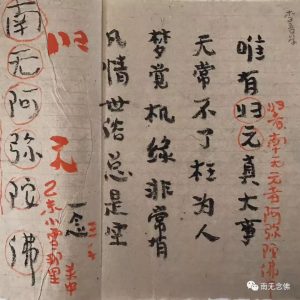 归者南无元者阿弥陀佛
唯有归元真大事
无常不了枉为人
梦觉机缘非常
凡情世俗总是
一念
归元
乙未小雪
南无阿弥陀佛
南无念佛